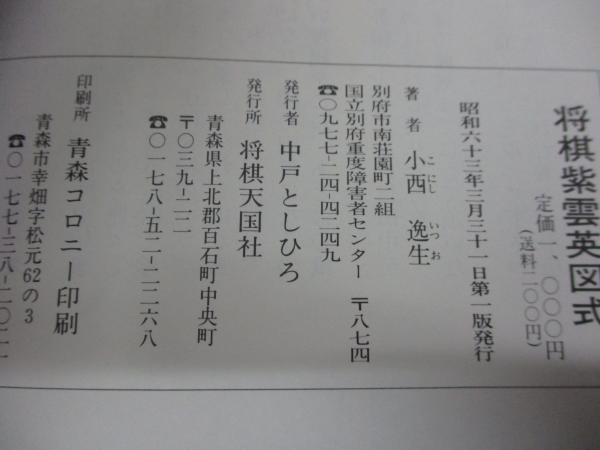 将棋紫雲英図式
定価一、〇〇〇円
(送料二〇〇円)
昭和六十三年三月三十一日第一版発行
著者 小西 逸生
こにし いつお
別府市南荘園町二組
国立別府重度障害者センター 〒八七四
☎〇九七七-二四-四二四九
発行者 中戸としひろ
発行所 将棋天国社
青森県上北郡百石町中央町
〒〇三九-二二
☎〇一七八-五二-二二六八
印刷所 青森コロニー印刷
青森市幸畑字松元62の3
☎〇一七七-三八-二〇二一